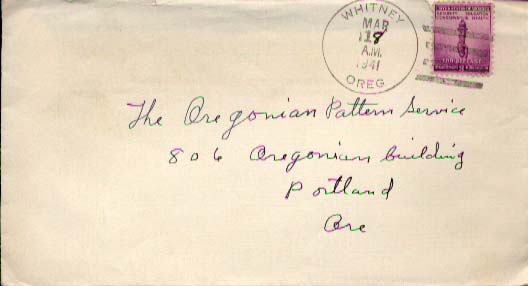 WHITNEY
MAR
18
A.M.
1941
OREG
FOR DEFENSE
The Oregonian Pattern Service
806 Oregonian building
Portland
Ore